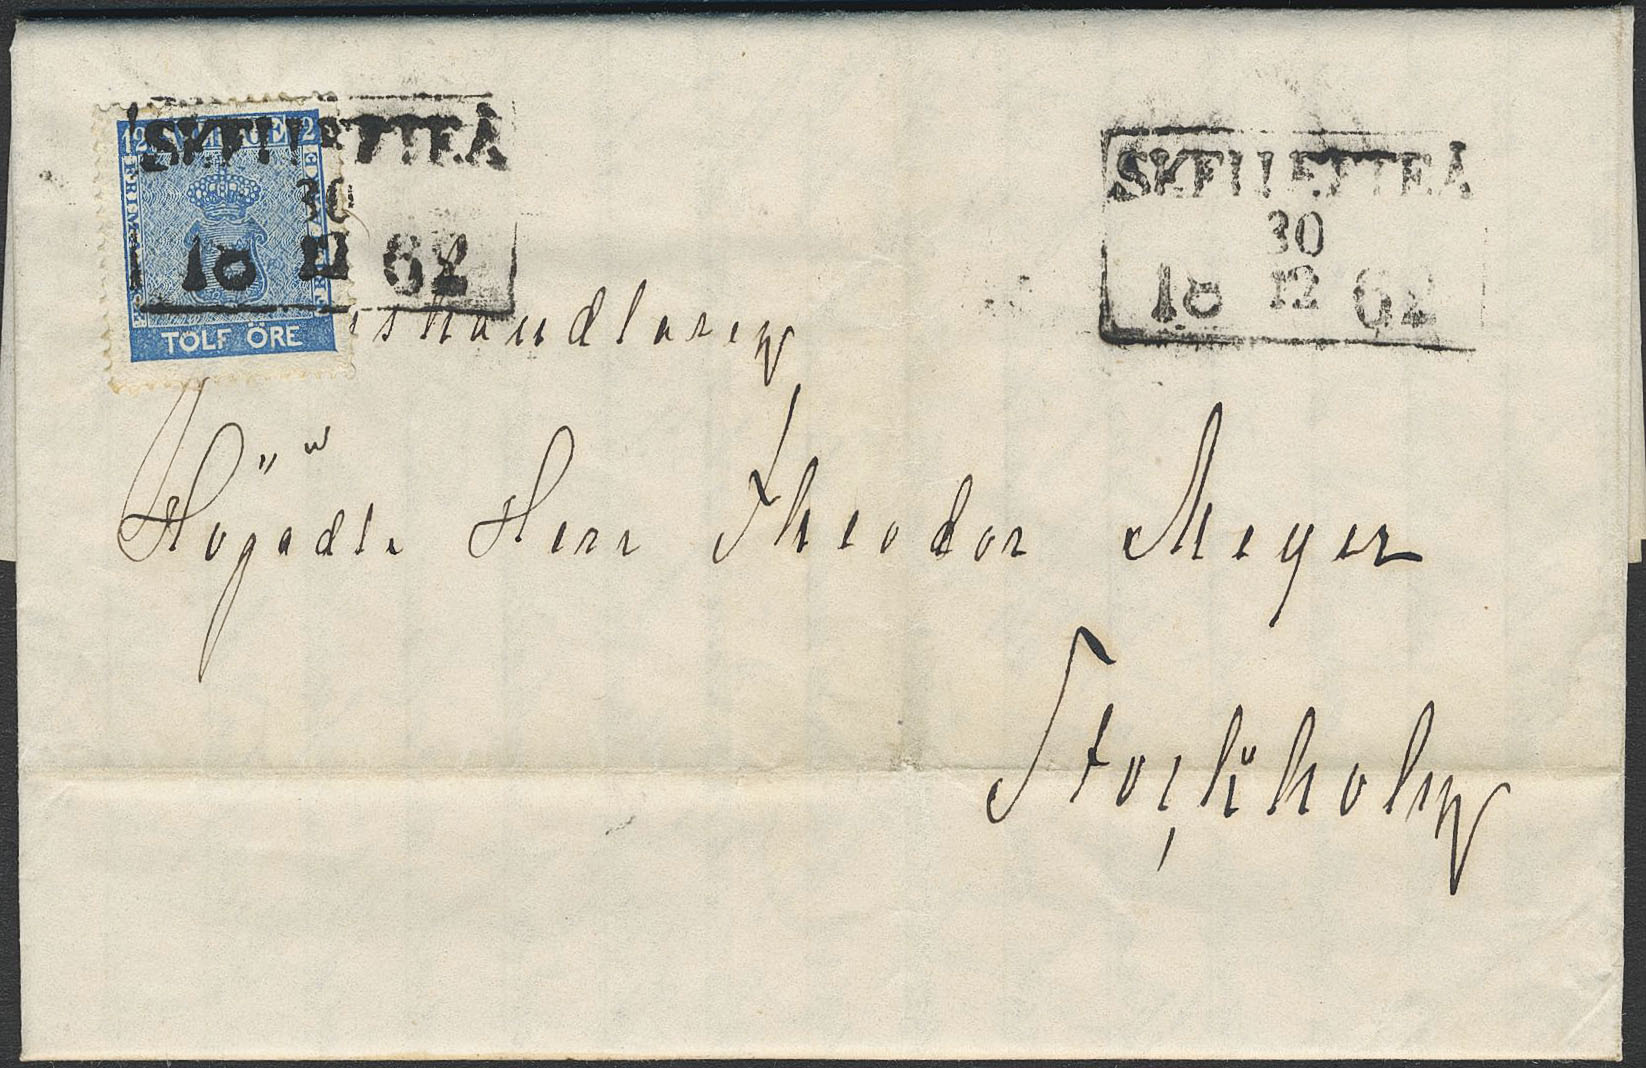 SKELLEFTEÅ
30
18 12 62
SVERIGE
FRIMÄRKE
TOLF ÖRE
SKELLEFTEÅ
30
18 12 62
Högädle Herr Theodor Meyer
Stockholm